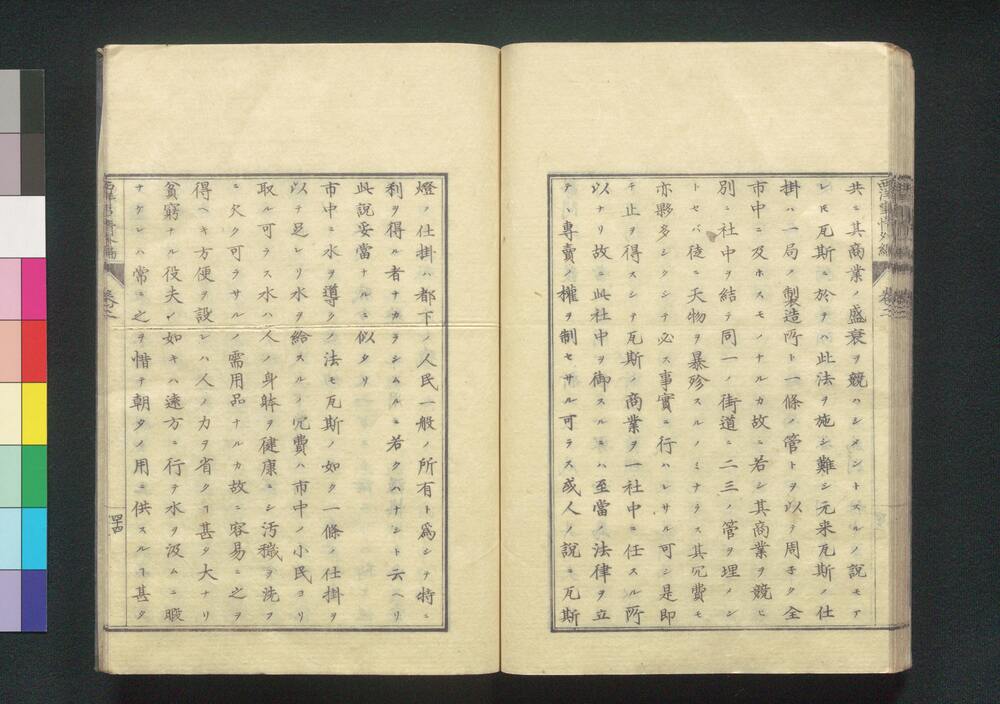 共ニ其商業ノ盛衰ヲ競ハシメントスルノ説モア
レㇳモ瓦斯ニ於テハ此法ヲ施シ難シ元来瓦斯ノ仕
掛ハ一局ノ製造所ト一條ノ管トヲ以テ周子ク全
市中ニ及ホスモノナルカ故ニ若シ其商業ヲ競ヒ
別ニ社中ヲ結テ同一ノ街道ニ二三ノ管ヲ埋メン
トセバ徒ニ天物ヲ暴殄スルノミナラス其冗費モ
亦夥多シクシテ必ス事實ニ行ハレサル可シ是即
チ止ヲ得スシテ瓦斯ノ商業ヲ一社中ニ任スル所
以ナリ故ニ此社中ヲ御スルニハ至當ノ法律ヲ立
テヽ専賣ノ權ヲ制セサル可ラス或人ノ説ニ瓦斯
燈ノ仕掛ハ都下ノ人民一般ノ所有ト爲シテ特ニ
利ヲ得ル者ナカラシムルニ若クハナシト云ヘリ
此説妥當ナルニ似タリ
市中ニ水ヲ導クノ法モ瓦斯ノ如ク一條ノ仕掛ヲ
以テ足レリ水ヲ給スルノ冗費ハ市中ノ小民ヨリ
取ル可ラス水ハ人ノ身躰ヲ健康ニシ汚穢ヲ洗フ
ニ欠ク可ラサルノ需用品ナルカ故ニ容易ニ之ヲ
得ヘキ方便ヲ設レハ人ノ力ヲ省クヿ甚タ大ナリ
貧窮ナル役夫ノ如キハ遠方ニ行テ水ヲ汲ムニ暇
ナケレハ常ニ之ヲ惜テ朝夕ノ用ニ供スルヿ甚タ
西洋事情外編
卷之二
四十四